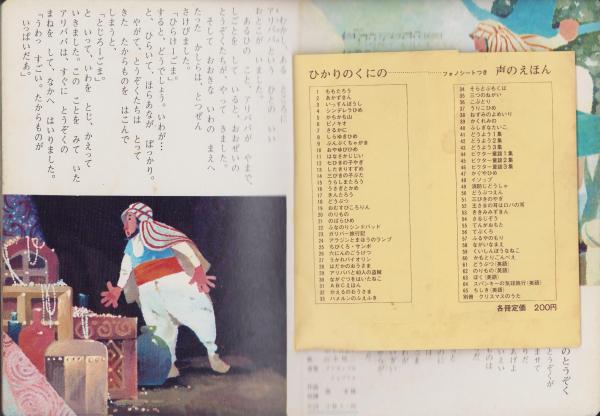 むかし、ある ところに
アリババという
おとこが いました。
あるひの こと、アリババが やまで、
しごとを して いると、おおぜいの
とうぞくたちが やって きました。
そして、おおきな いわの まえへ
たった かしらは、とつぜん
さけびました。
「ひらけーごま」
すると、どうでしょう。いわが…
と、ひらいて、ほらあなが ぽっかり。
やがて、とうぞくたちは とって
きた たからものを はこんで
しまうと、
「とじろーごま」
と いって、いわを とじ、かえって
いきました。この ことを みて いた
アリババは、すぐに とうぞくの
まねを して、なかへ はいりました。
「うわっ すごい。たからものが
いっぱいだぁ。」
ひかりのくにの フォノシートつき 声のえほん
1 ももたろう
2 あかずきん
3 いっすんぼうし
4 シンデレラひめ
5 かちかち山
6 ピノキオ
7 さるかに
8 しらゆきひめ
9 ぶんぶくちゃがま
10 おやゆびひめ
11 はなさかじじい
12 七ひきの子やぎ
13 したきりすずめ
14 三びきの子ぶた
15 うらしまたろう
16 うさぎとかめ
17 きんたろう
18 どうぶつ
19 おむすびころりん
20 のりもの
21 のばらひめ
22 ふなのりシンドバッド
23 ガリバー旅行記
24 アラジンとまほうのランプ
25 ちびくろ・サンボ
26 六にんのごうけつ
27 うかれバイオリン
28 はだかのおうさま
29 アリババと40人の盗賊
30 ながぐつをはいたねこ
31 ABCえほん
32 かえるのおうさま
33 ハメルンのふえふき
34 そらとぶもくば
35 三つのねがい
36 こぶとり
37 うりこひめ
38 ねずみのよめいり
39 かくれみの
40 ふしぎなたいこ
41 どうよう1集
42 どうよう2集
43 どうよう3集
44 ビクター童謡1集
45 ビクター童謡2集
46 ビクター童謡3集
47 かぐやひめ
48 イソップ
49 消防じどうしゃ
50 どうぶつえん
51 三びきのやぎ
52 王さまの耳はロバの耳
53 ききみみずきん
54 さるじぞう
55 てんがおもた
56 てぶくろ
57 ふるやのもり
58 ながいなまえ
59 くいしんぼうなねこ
60 かもとりごんべえ
61 どうぶつ(英語)
62 のりもの(英語)
63 ぼく(英語)
64 スパンキーの気球旅行(英語)
65 ちしき(英語)
別冊 クリスマスのうた
各冊定価 200円
のとうぞく